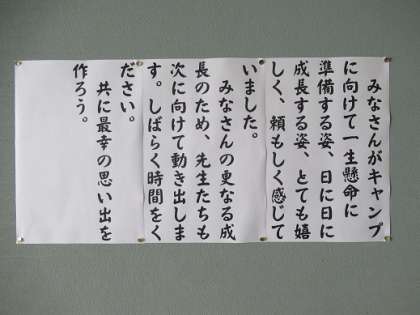 みなさんがキャンプ
に向けて一生懸命に
準備する姿、日に日に
成長する姿、とても嬉
しく、頼もしく感じて
いました。
みなさんの更なる成
長のため、先生たちも
次に向けて動き出しま
す。しばらく時間をく
ださい。
共に最幸の思い出を
作ろう。